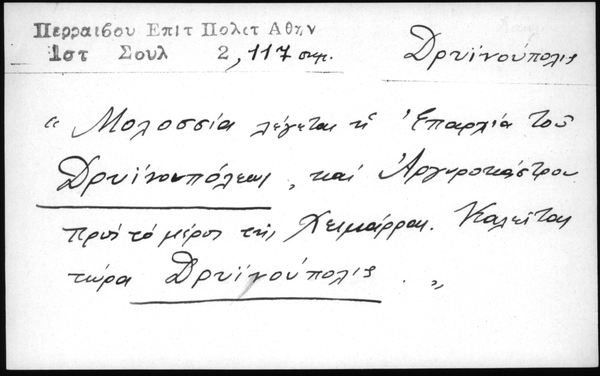 Περραιβου Επιτ Πολιτ Αθην
Ιστ Σουλ 2, 117 σημ.
Δρυϊνούπολις
“ Μολοσσία λέγεται ἡ Ἐπαρχία τοῦ
Δρυϊνουπόλεως, καί Ἀργυροκάστρου
πρός τό μέρος τῆς Χειμάρρας. Καλεῖται
τώρα Δρυϊνούπολις. „